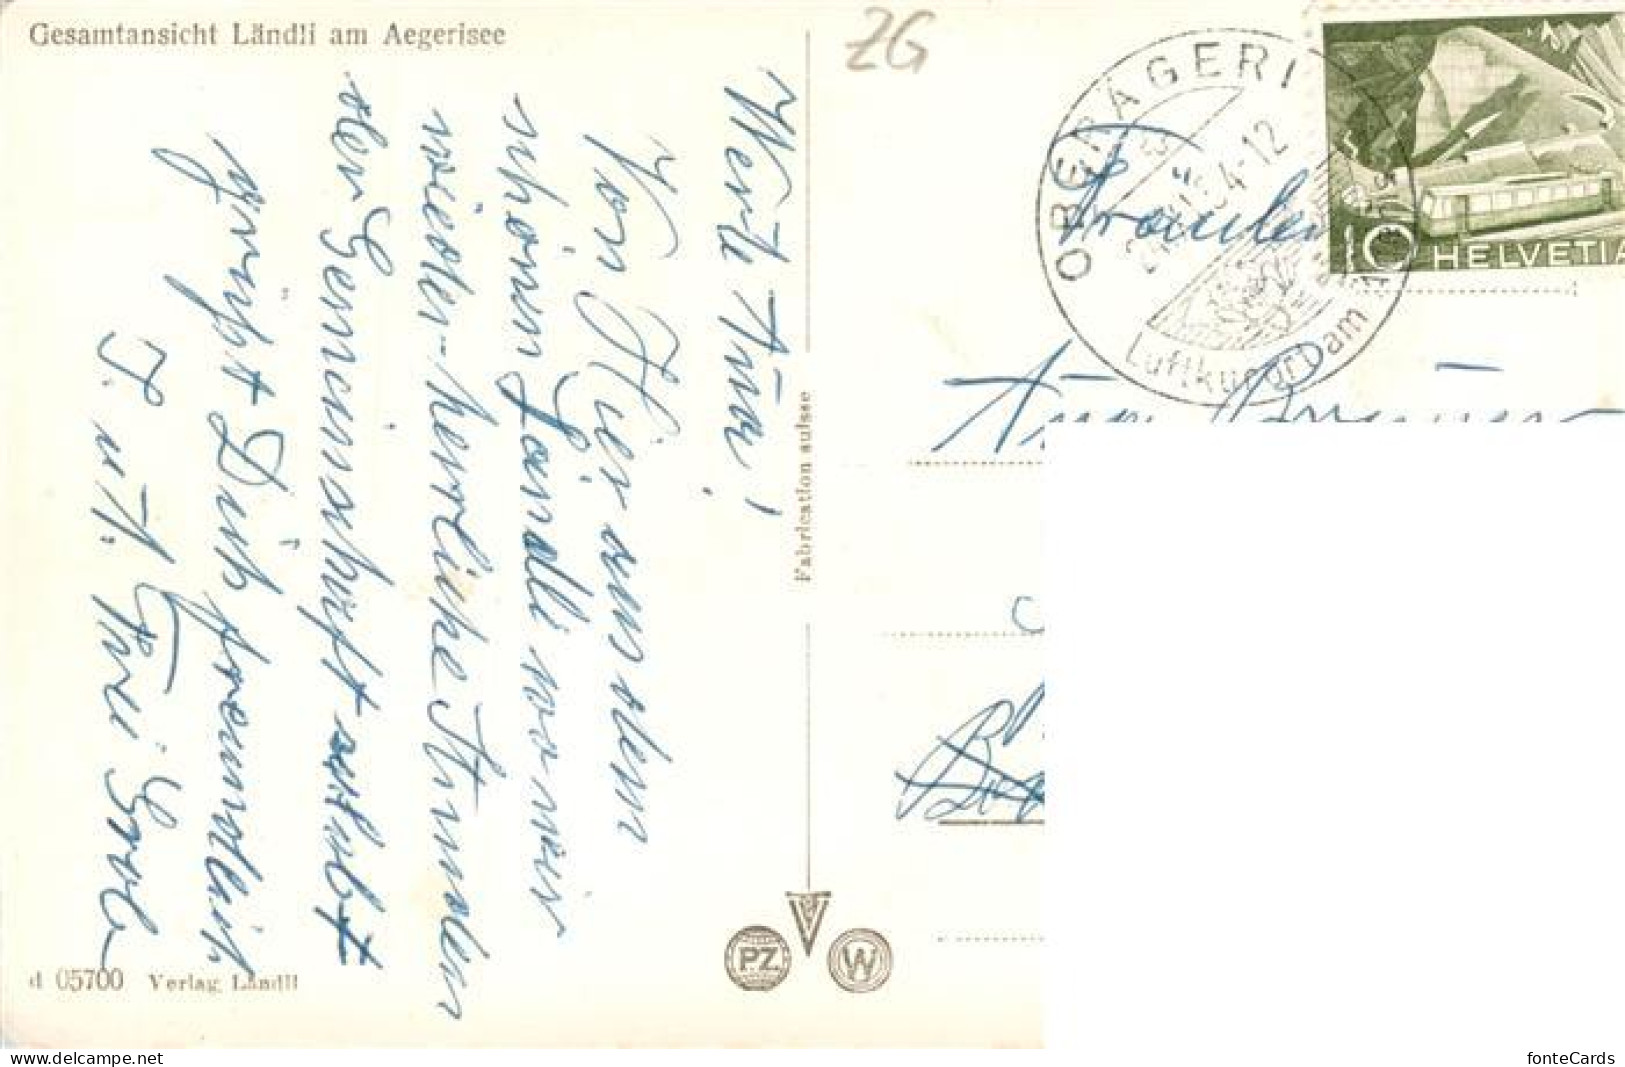 Gesamtansicht Ländli am Aegerisee
Werte Anna!
Von Hier aus dem
schönen Ländli wo wir
wieder herrliche Stunden
der Gemeinschaft erlebt
grüsst Dich freundlich
J. u. A.
Fabrication suisse
d 05700 Verlag Ländli
PZ
W
ZG
OBERÄGERI
4-12
Luftkurort am
10 HELVETIA
Fräulein
Anna
fonteCards